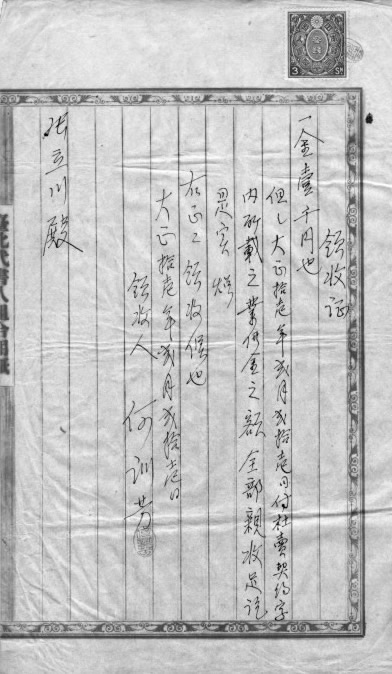 領收証
一金壹千円也
但シ大正拾壱年弐月弐拾壱日付杜賣契約字
內所載之業価金之額全部親收足訖
是實烘
右正ニ領收候也
大正拾壱年弐月弐拾壱日
領收人 何訓芳
張立川殿
3 Sn